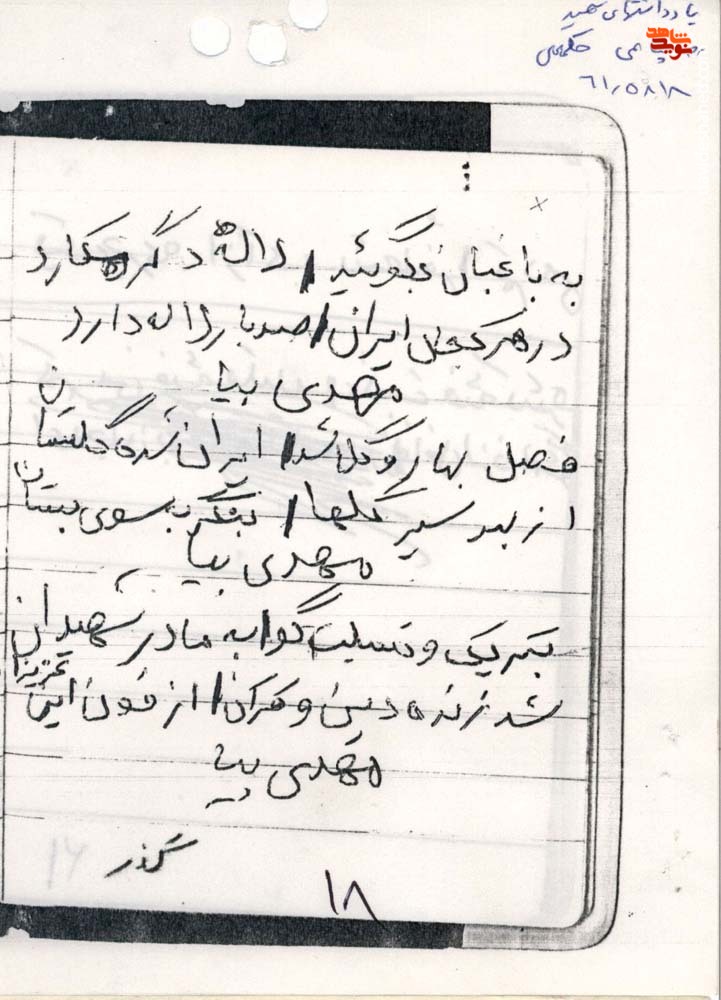 یادداشتهای شهید
حکمعلی
۶۱/۵/۸۱۸
شاهد
نوید
به باغبان بگوئید / لاله دگر نکارد
در هر کجای ایران / صد بار لاله دارد
مهدی بیا
فصل بهار و گل شد / ایران شده گلستان
از بهر سیر گلها / بنگر به سوی بستان
مهدی بیا
تبریک و تسلیت گو / به مادر شهیدان
شد زنده دین و قرآن / از خون این عزیزان
مهدی بیا
گذر
۱۸
۱۶